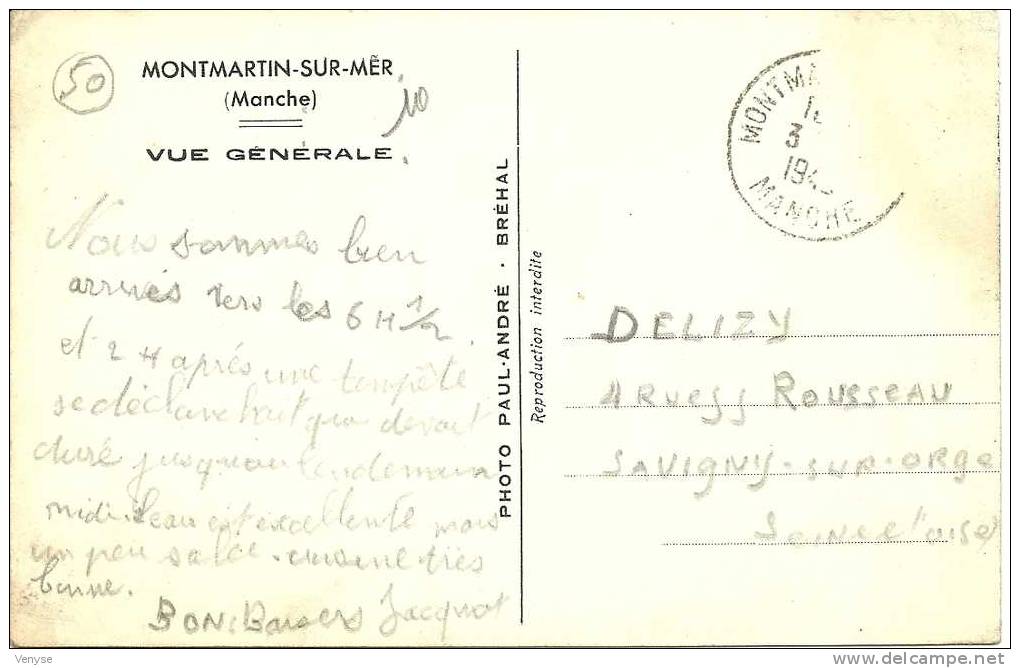 50
MONTMARTIN-SUR-MER
(Manche)
10
VUE GÉNÉRALE
Nous sommes bien
arrivés vers les 6 H 1/2
et 2 H après une tempête
se déclanchait qui devait
duré jusqu'au lendemain
midi. l'eau est excellente mais
un peu salée. cuisine très
bonne.
BON. Baisers Jacquot
PHOTO PAUL-ANDRÉ · BRÉHAL
Reproduction interdite
MONTMA
3
194
MANCHE
DELIZY
4 Rue JJ ROUSSEAU
SAVIGNY-sur-ORGE
Seine et oise
Venyse
delcampe.net